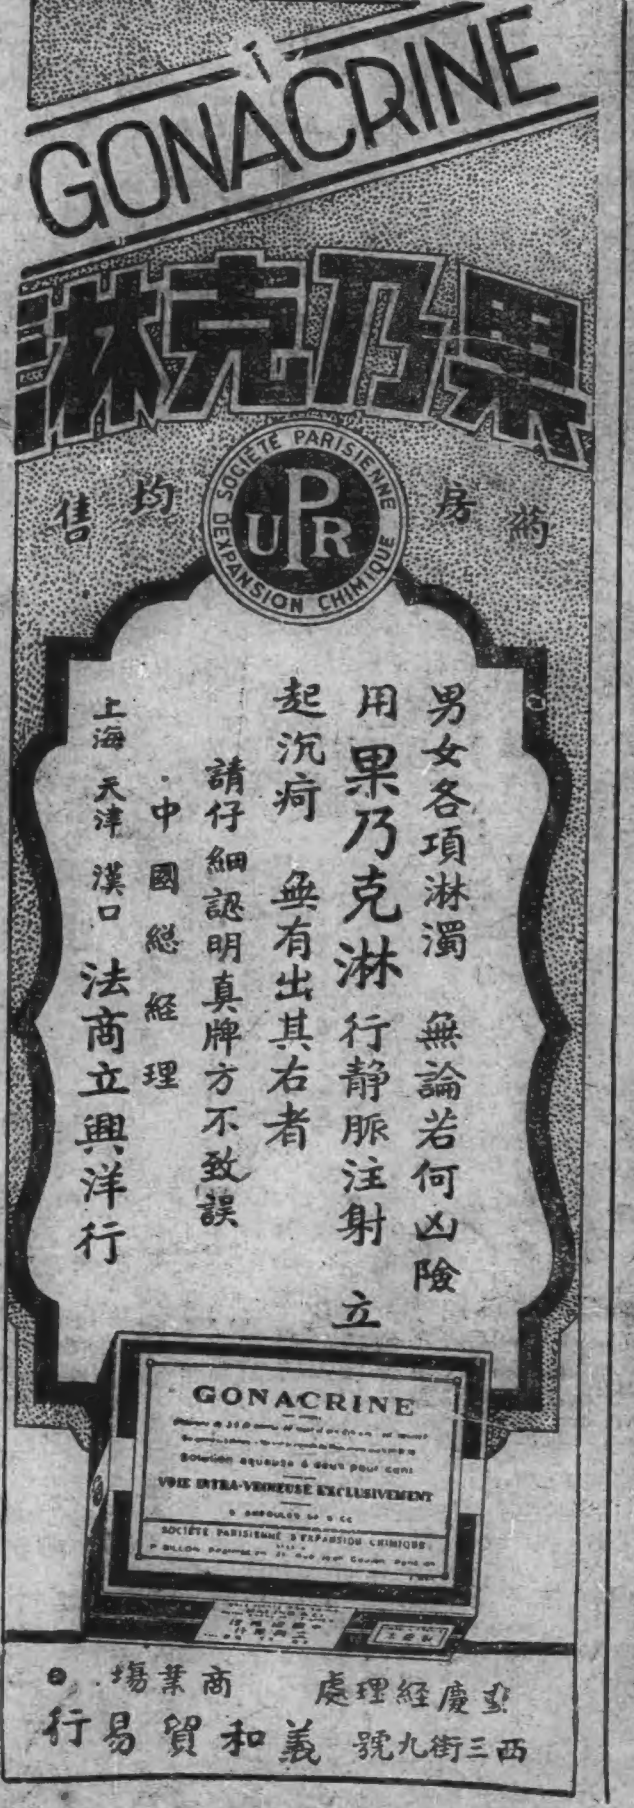 GONACRINE
果乃克淋
葯房
均售
SOCIÉTÉ PARISIENNE
D'EXPANSION CHIMIQUE
UPR
男女各項淋濁 無論若何凶險
用果乃克淋行靜脈注射 立
起沉疴 無有出其右者
請仔細認明真牌方不致誤
中國總經理
上海 天津 漢口 法商立興洋行
GONACRINE
Solution aqueuse à deux pour cent
VOIE INTRA-VEINEUSE EXCLUSIVEMENT
SOCIÉTÉ PARISIENNE D'EXPANSION CHIMIQUE
重慶經理處 商業場
西三街九號 義和貿易行